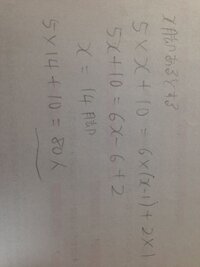 x脚あるとする
5×x+10=6×(x-1)+2×1
5x+10=6x-6+2
x=14脚
5×14+10=80人